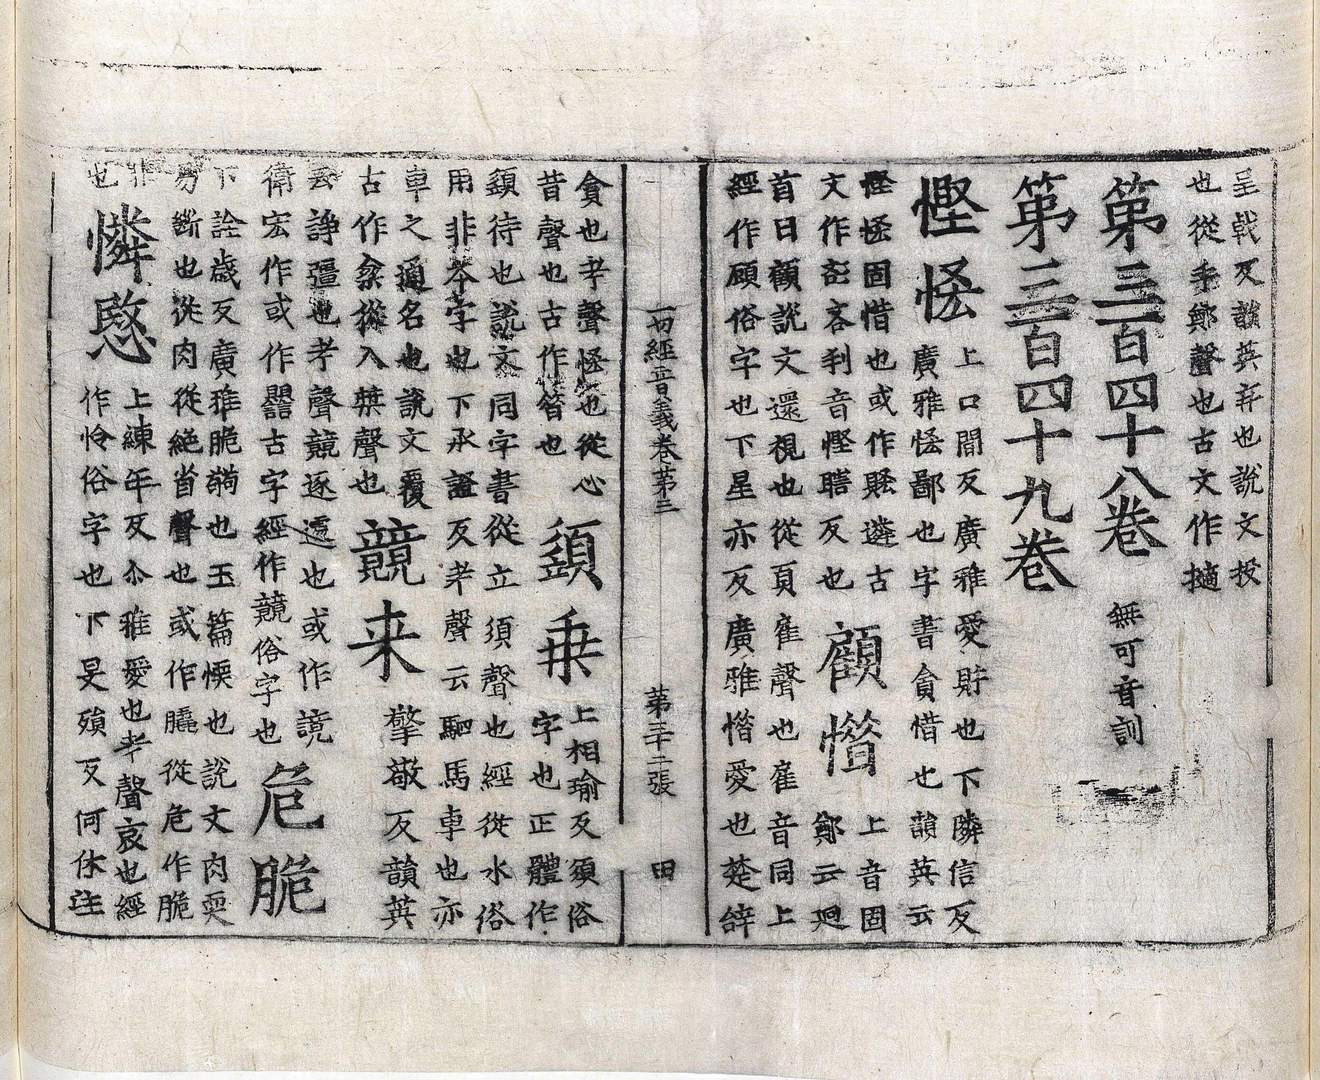 呈戟反韻英弃也說文投
也從手鄭聲也古文作擿
第三百四十八卷 無可音訓
第三百四十九卷
慳悋 上口閒反廣雅愛財也下隣信反
廣雅悋鄙也字書貪惜也韻英云
慳悋固惜也或作䝨遴古
文作㖁吝利音慳瞎反也
顧惜 上音固
鄭云迴
首曰顧說文還視也從頁雇聲也雇音同上
經作顾俗字也下星亦反廣雅惜愛也楚辞
一切經音義卷第三 第三十二張 田
貪也考聲悋也從心
昔聲也古作㫺也
須乗 上相瑜反須俗
字也正體作
䇓待也說文同字書從立須聲也經從水俗
用非夲字也下承證反考聲云駟馬車也亦
車之通名也說文覆
古作椉從入桀聲也
競来 擎敬反韻英
云諍彊也考聲競逐遽也或作竸
衛宏作或作誩古字經作競俗字也
危脆
下詮歲反廣雅脆䎡也玉篇愞也說文肉耎
易斷也從肉從絕省聲也或作膬從危作脆
非
也
憐愍 上練年反尒雅愛也考聲哀也經
作怜俗字也下旻殞反何休注